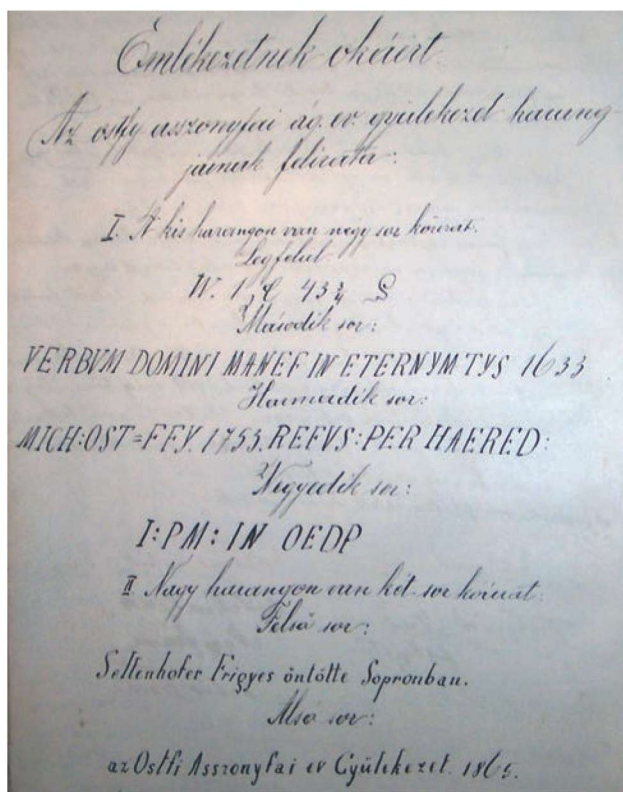 Emlékezetnek okáért.
Az ostfy asszonyfai ág. ev. gyülekezet harang-
jainak felirata:
I. A kis harangon van négy sor körirat.
Legfelül.
W. 1, C 43¾
Második sor:
VERBVM DOMINI MANEF IN ETERNYM TYS 1633
Harmadik sor:
MICH:OST=FFY. 1753. REFVS: PER HAERED:
Negyedik sor:
I:PM: IN OEDP
II Nagy harangon van két sor körirat.
Felső sor:
Seltenhofer Frigyes öntötte Sopronban.
Alsó sor:
az Ostfi Asszonyfai ev Gyülekezet. 1865.